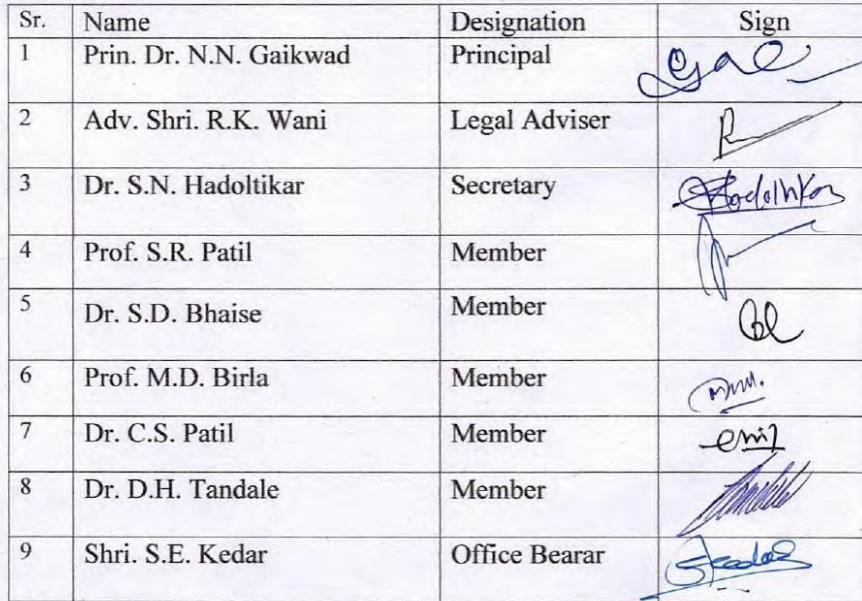 Sr. Name Designation Sign
1 Prin. Dr. N.N. Gaikwad Principal
2 Adv. Shri. R.K. Wani Legal Adviser
3 Dr. S.N. Hadoltikar Secretary
4 Prof. S.R. Patil Member
5 Dr. S.D. Bhaise Member
6 Prof. M.D. Birla Member
7 Dr. C.S. Patil Member
8 Dr. D.H. Tandale Member
9 Shri. S.E. Kedar Office Bearar